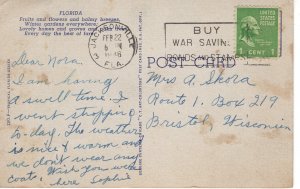 FLORIDA
Fruits and flowers and balmy breezes,
Winter gardens everywhere,
Lovely homes and groves and
Every day the best of
JACKSONVILLE
FEB 22
6 PM
FLA.
BUY
WAR SAVINGS
BONDS AND STAMPS
UNITED STATES POSTAGE
1 CENT 1
POST CARD
Dear Nora.
I am having
a swell time. I
went shopping
to-day. The weather
is nice & warm and
we don't wear any
coats. Wish you were
here Sophie
Mrs A. Skora
Route 1. Box 219
Bristol, Wisconsin